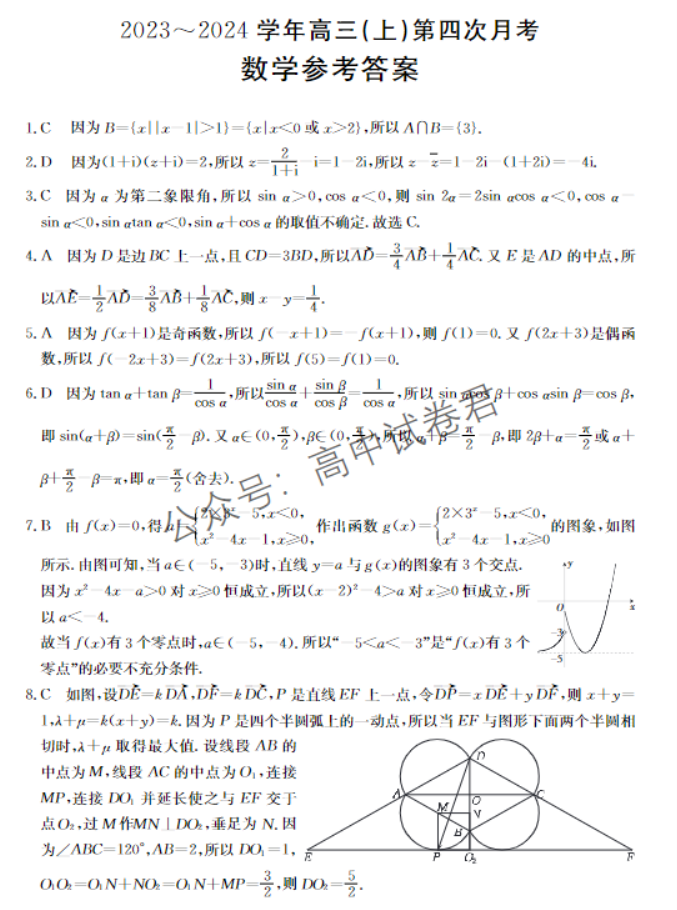 2023～2024 学年高三(上)第四次月考
数学参考答案
1. C 因为 B={x||x-1|>1}={x|x<0 或 x>2},所以 A∩B={3}.
2. D 因为(1+i)(z+i)=2,所以 z=2/(1+i)-i=1-2i,所以 z-z̄=1-2i-(1+2i)=-4i.
3. C 因为 α 为第二象限角,所以 sin α>0,cos α<0,则 sin 2α=2sin αcos α<0,cos α-
sin α<0,sin αtan α<0,sin α+cos α 的取值不确定. 故选 C.
4. A 因为 D 是边 BC 上一点,且 CD=3BD,所以AD→=3/4 AB→+1/4 AC→. 又 E 是 AD 的中点,所
以AE→=1/2 AD→=3/8 AB→+1/8 AC→,则 x-y=1/4.
5. A 因为 f(x+1)是奇函数,所以 f(-x+1)=-f(x+1),则 f(1)=0. 又 f(2x+3)是偶函
数,所以 f(-2x+3)=f(2x+3),所以 f(5)=f(1)=0.
6. D 因为 tan α+tan β=1/cos α,所以 sin α/cos α+sin β/cos β=1/cos α,所以 sin αcos β+cos αsin β=cos β,
即 sin(α+β)=sin(π/2-β). 又 α∈(0,π/2),β∈(0,π/2),所以 α+β=π/2-β,即 2β+α=π/2或 α+
β+π/2-β=π,即 α=π/2(舍去).
公众号：高中试卷君
7. B 由 f(x)=0,得 a={2×3ˣ-5,x<0, x²-4x-1,x⩾0, 作出函数 g(x)={2×3ˣ-5,x<0, x²-4x-1,x⩾0 的图象,如图
所示. 由图可知,当 a∈(-5,-3)时,直线 y=a 与 g(x)的图象有 3 个交点.
因为 x²-4x-a>0 对 x⩾0 恒成立,所以(x-2)²-4>a 对 x⩾0 恒成立,所
以 a<-4.
故当 f(x)有 3 个零点时,a∈(-5,-4). 所以“-5<a<-3”是“f(x)有 3 个
零点”的必要不充分条件.
y
O
x
-3
-5
8. C 如图,设DE→=kDA→,DF→=kDC→,P 是直线 EF 上一点,令DP→=xDE→+yDF→,则 x+y=
1,λ+μ=k(x+y)=k. 因为 P 是四个半圆弧上的一动点,所以当 EF 与图形下面两个半圆相
切时,λ+μ 取得最大值. 设线段 AB 的
中点为 M,线段 AC 的中点为 O₁,连接
MP,连接 DO₁ 并延长使之与 EF 交于
点 O₂,过 M 作MN⊥DO₂,垂足为 N. 因
为∠ABC=120°,AB=2,所以 DO₁=1,
O₁O₂=O₁N+NO₂=O₁N+MP=3/2,则 DO₂=5/2.
D
A
O
C
M
N
B
E
P
O₂
F